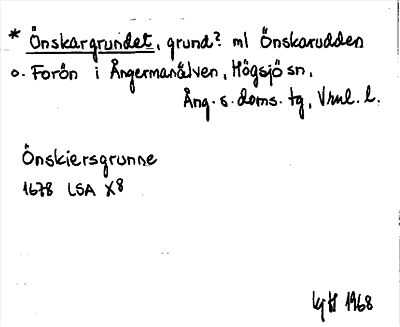 * Önskargrundet, grund? ml Önskarudden
o. Forön i Ångermanälven, Högsjö sn,
Ång. s. doms. tg, Vrnl. l.
Önskiersgrunne
1678 LSA X8
1968